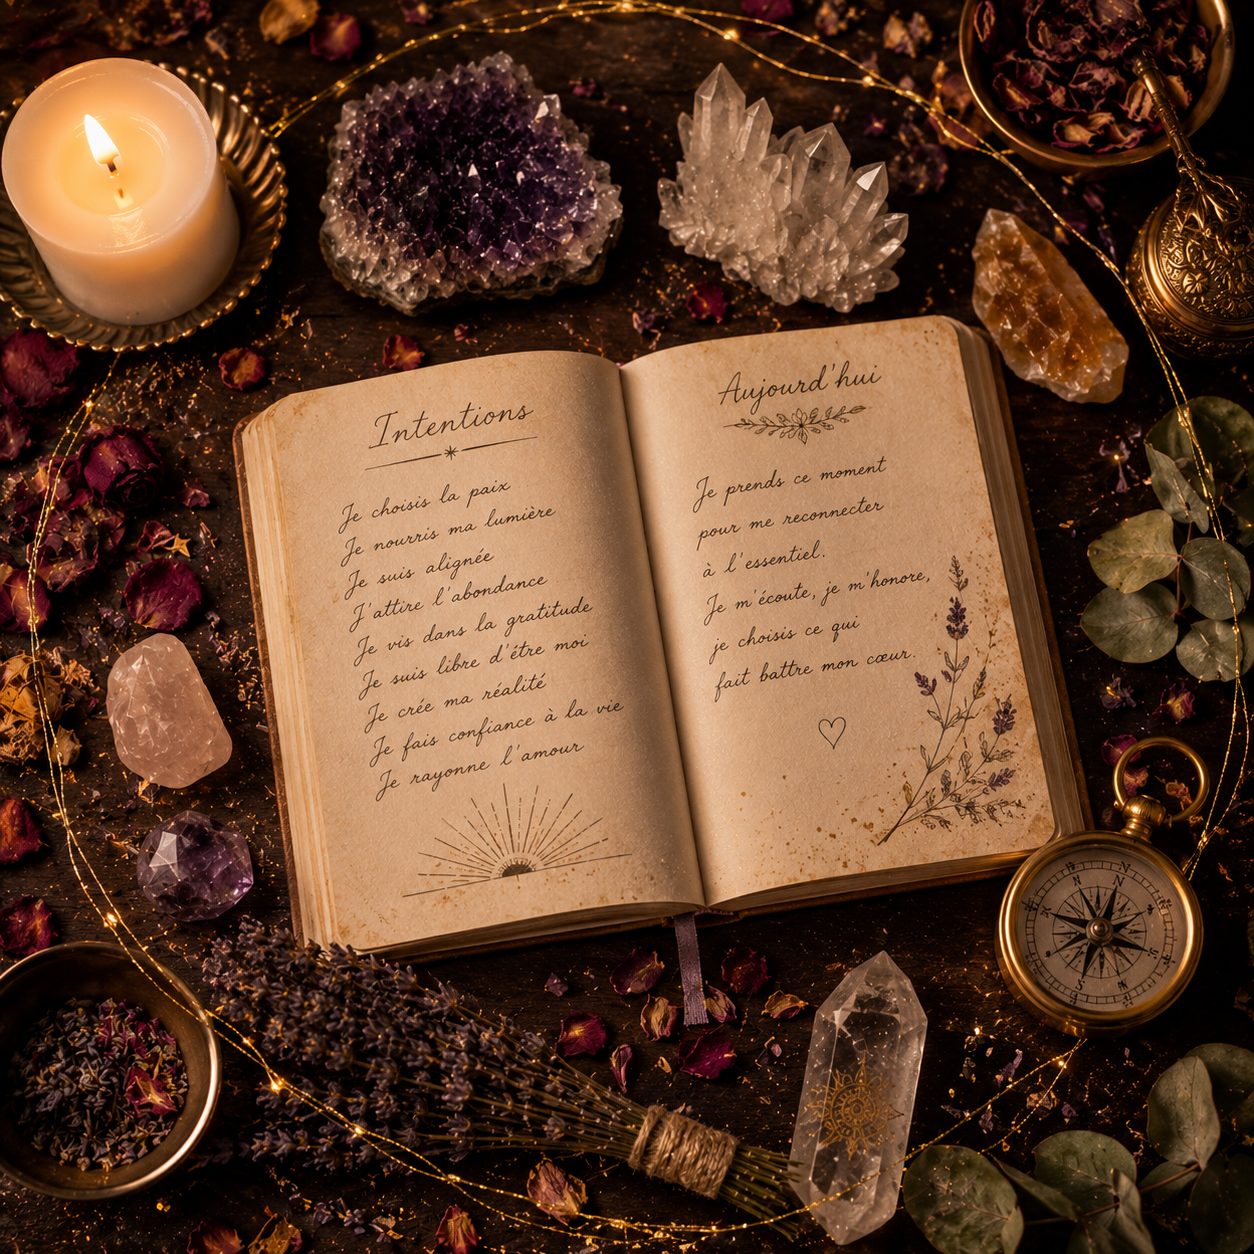 Intentions
Je choisis la paix
Je nourris ma lumière
Je suis alignée
J'attire l'abondance
Je vis dans la gratitude
Je suis libre d'être moi
Je crée ma réalité
Je fais confiance à la vie
Je rayonne l'amour
Aujourd'hui
Je prends ce moment
pour me reconnecter
à l'essentiel.
Je m'écoute, je m'honore,
je choisis ce qui
fait battre mon cœur.